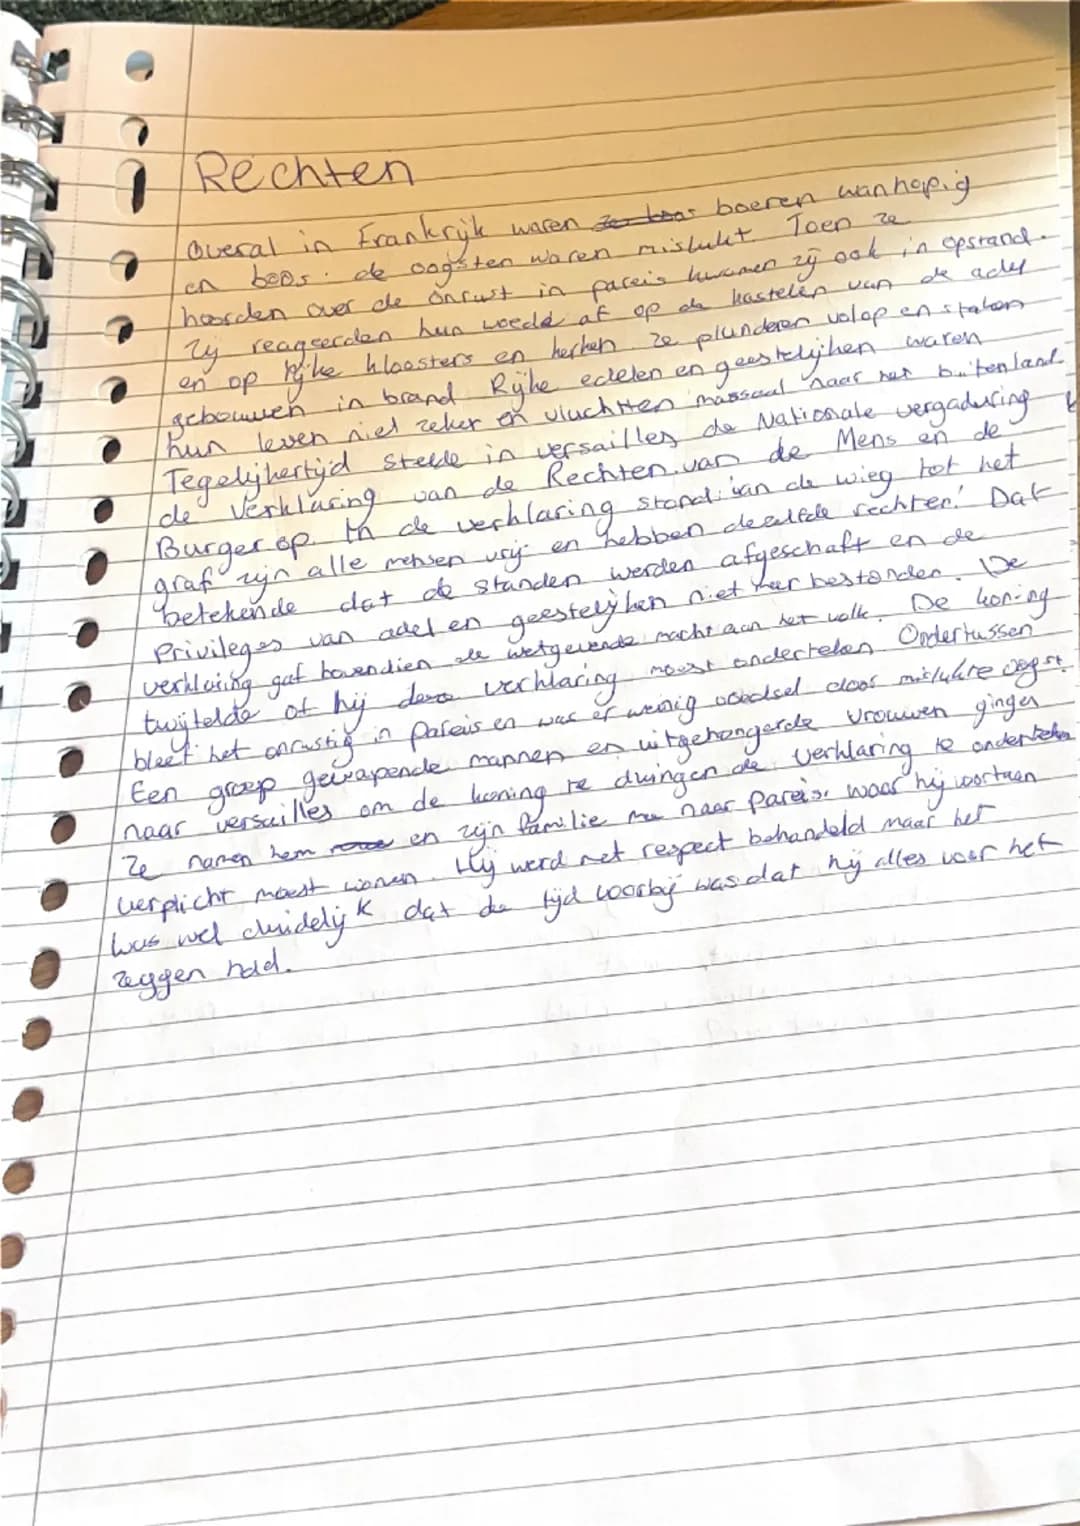 Rechten
Overal in Frankrijk waren boeren wanhopig
en boos. de oogsten waren mislukt. Toen ze
hoorden over de onrust in pareis kwamen zij ook in opstand.
Zij reageerden hun woede af op de kastelen van de adel
en op rijke kloosters en kerken. ze plunderen volop en staken
gebouwen in brand. Rijke edelen en geestelijken waren
hun leven niet zeker en vluchtten massaal naar het buitenland.
Tegelijkertijd stelde in versailles de Nationale vergadering
de Verklaring van de Rechten van de Mens en de
Burger op. In de verklaring stond: van de wieg tot het
graf zijn alle mensen vrij en hebben dezelfde rechten! Dat
betekende dat de standen werden afgeschaft en de
Privileges van adel en geestelijken niet meer bestonden. De
verklaring gaf bovendien de wetgevende macht aan het volk. De koning
twijfelde of hij deze verklaring moest ondertekenen Ondertussen
bleef het onrustig in Pareis en was er weinig voedsel door mislukte oogst.
Een groep gewapende mannen en uitgehongerde vrouwen gingen
naar versailles om de koning te dwingen de verklaring te ondertekenen
Ze namen hem en zijn familie mee naar pareis, waar hij voortaan
verplicht moest wonen. Hij werd met respect behandeld maar het
was wel duidelijk dat de tijd voorbij was dat hij alles voor het
zeggen had.